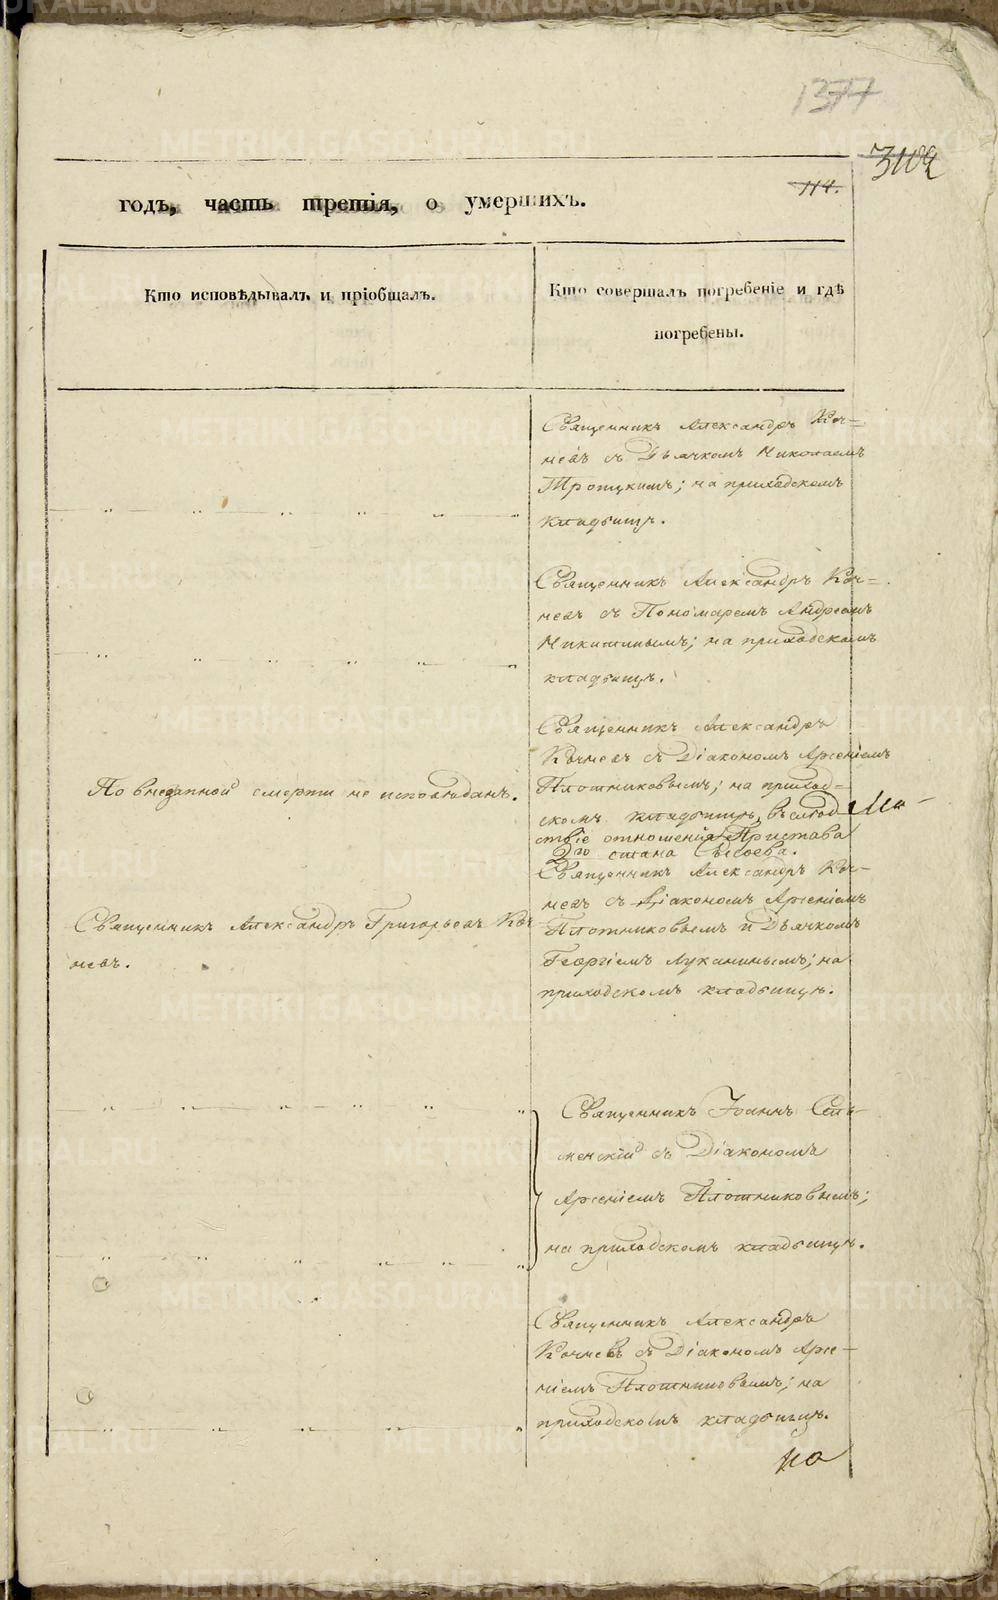 1377
314.
год, часть третія, о умершихъ.
Кто исповѣдывалъ и пріобщалъ.
Кто совершалъ погребеніе и гдѣ
погребены.
Священникъ Александръ Коч=
невъ съ Дьячкомъ Николаемъ
Троицкимъ; на приходскомъ
кладбищѣ.
Священникъ Александръ Коч=
невъ съ Пономаремъ Андреемъ
Никитинымъ; на приходскомъ
кладбищѣ.
По внезапной смерти не исповѣданъ.
Священникъ Александръ
Кочневъ съ Діакономъ Арсеніемъ
Плотниковымъ; на приход=
скомъ кладбищѣ, въслѣд
ствіе отношенія Пристава
2го стана Сысоева.
Священникъ Александръ Григорьевъ Коч
невъ.
Священникъ Александръ Коч=
невъ съ Діакономъ Арсеніемъ
Плотниковымъ и Дьячкомъ
Георгіемъ Луканинымъ; на
приходскомъ кладбищѣ.
Священникъ Іоаннъ
съ Діакономъ
Арсеніемъ Плотниковымъ;
на приходскомъ кладбищѣ.
Священникъ Александръ
Кочневъ съ Діакономъ Арсе=
ніемъ Плотниковымъ; на
приходскомъ кладбищѣ.
METRIKI.GASO-URAL.RU